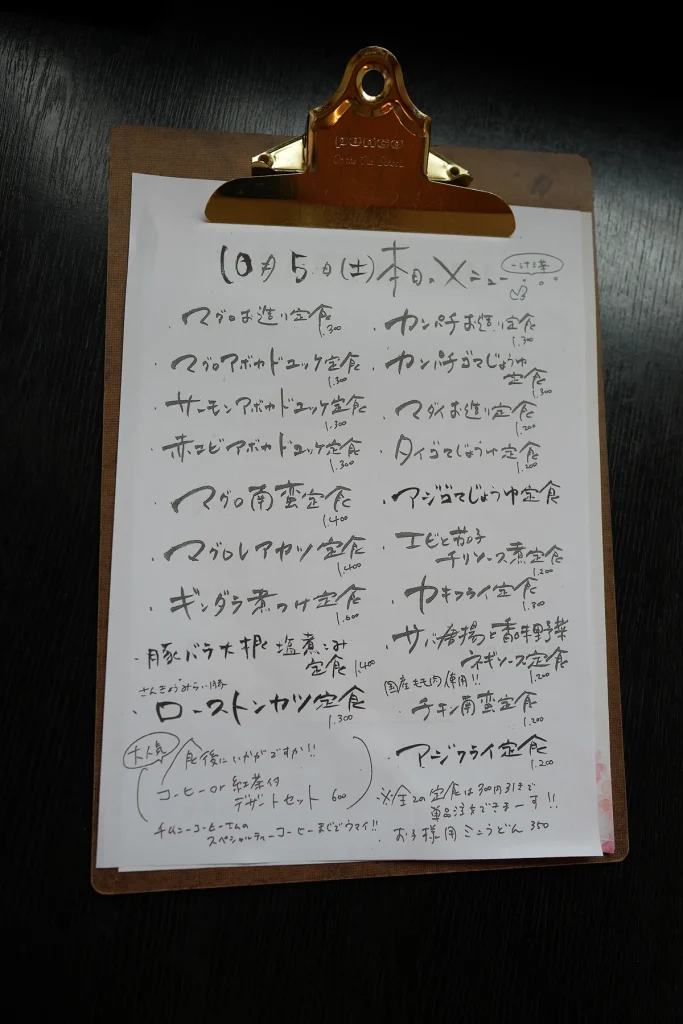 penco
10月5日(土)本日のメニュー
・マグロお造り定食 1.300
・マグロアボカドユッケ定食 1.300
・サーモンアボカドユッケ定食 1.300
・赤エビアボカドユッケ定食 1.300
・マグロ南蛮定食 1.400
・マグロレアカツ定食 1.400
・ギンダラ煮つけ定食 1.600
・豚バラ大根塩煮こみ
定食 1.400
さんきょうみらい豚
・ローストンカツ定食 1.300
大人気
食後にいかがですか!!
コーヒー or 紅茶付
デザートセット 600
チムニーコーヒーさんの
スペシャルティーコーヒーまじでウマイ!!
・カンパチお造り定食 1.300
・カンパチゴマじょうゆ
定食 1.300
・マダイお造り定食 1.200
・タイゴマじょうゆ定食 1.200
・アジゴマじょうゆ定食
・エビと茄子
チリソース煮定食 1.200
・カキフライ定食 1.300
・サバ唐揚と香味野菜
ネギソース定食 1.200
国産もも肉使用!!
・チキン南蛮定食 1.200
・アジフライ定食 1.200
※全ての定食は300円引きで
単品注文できまーす!!
・お子様用ミニうどん 350